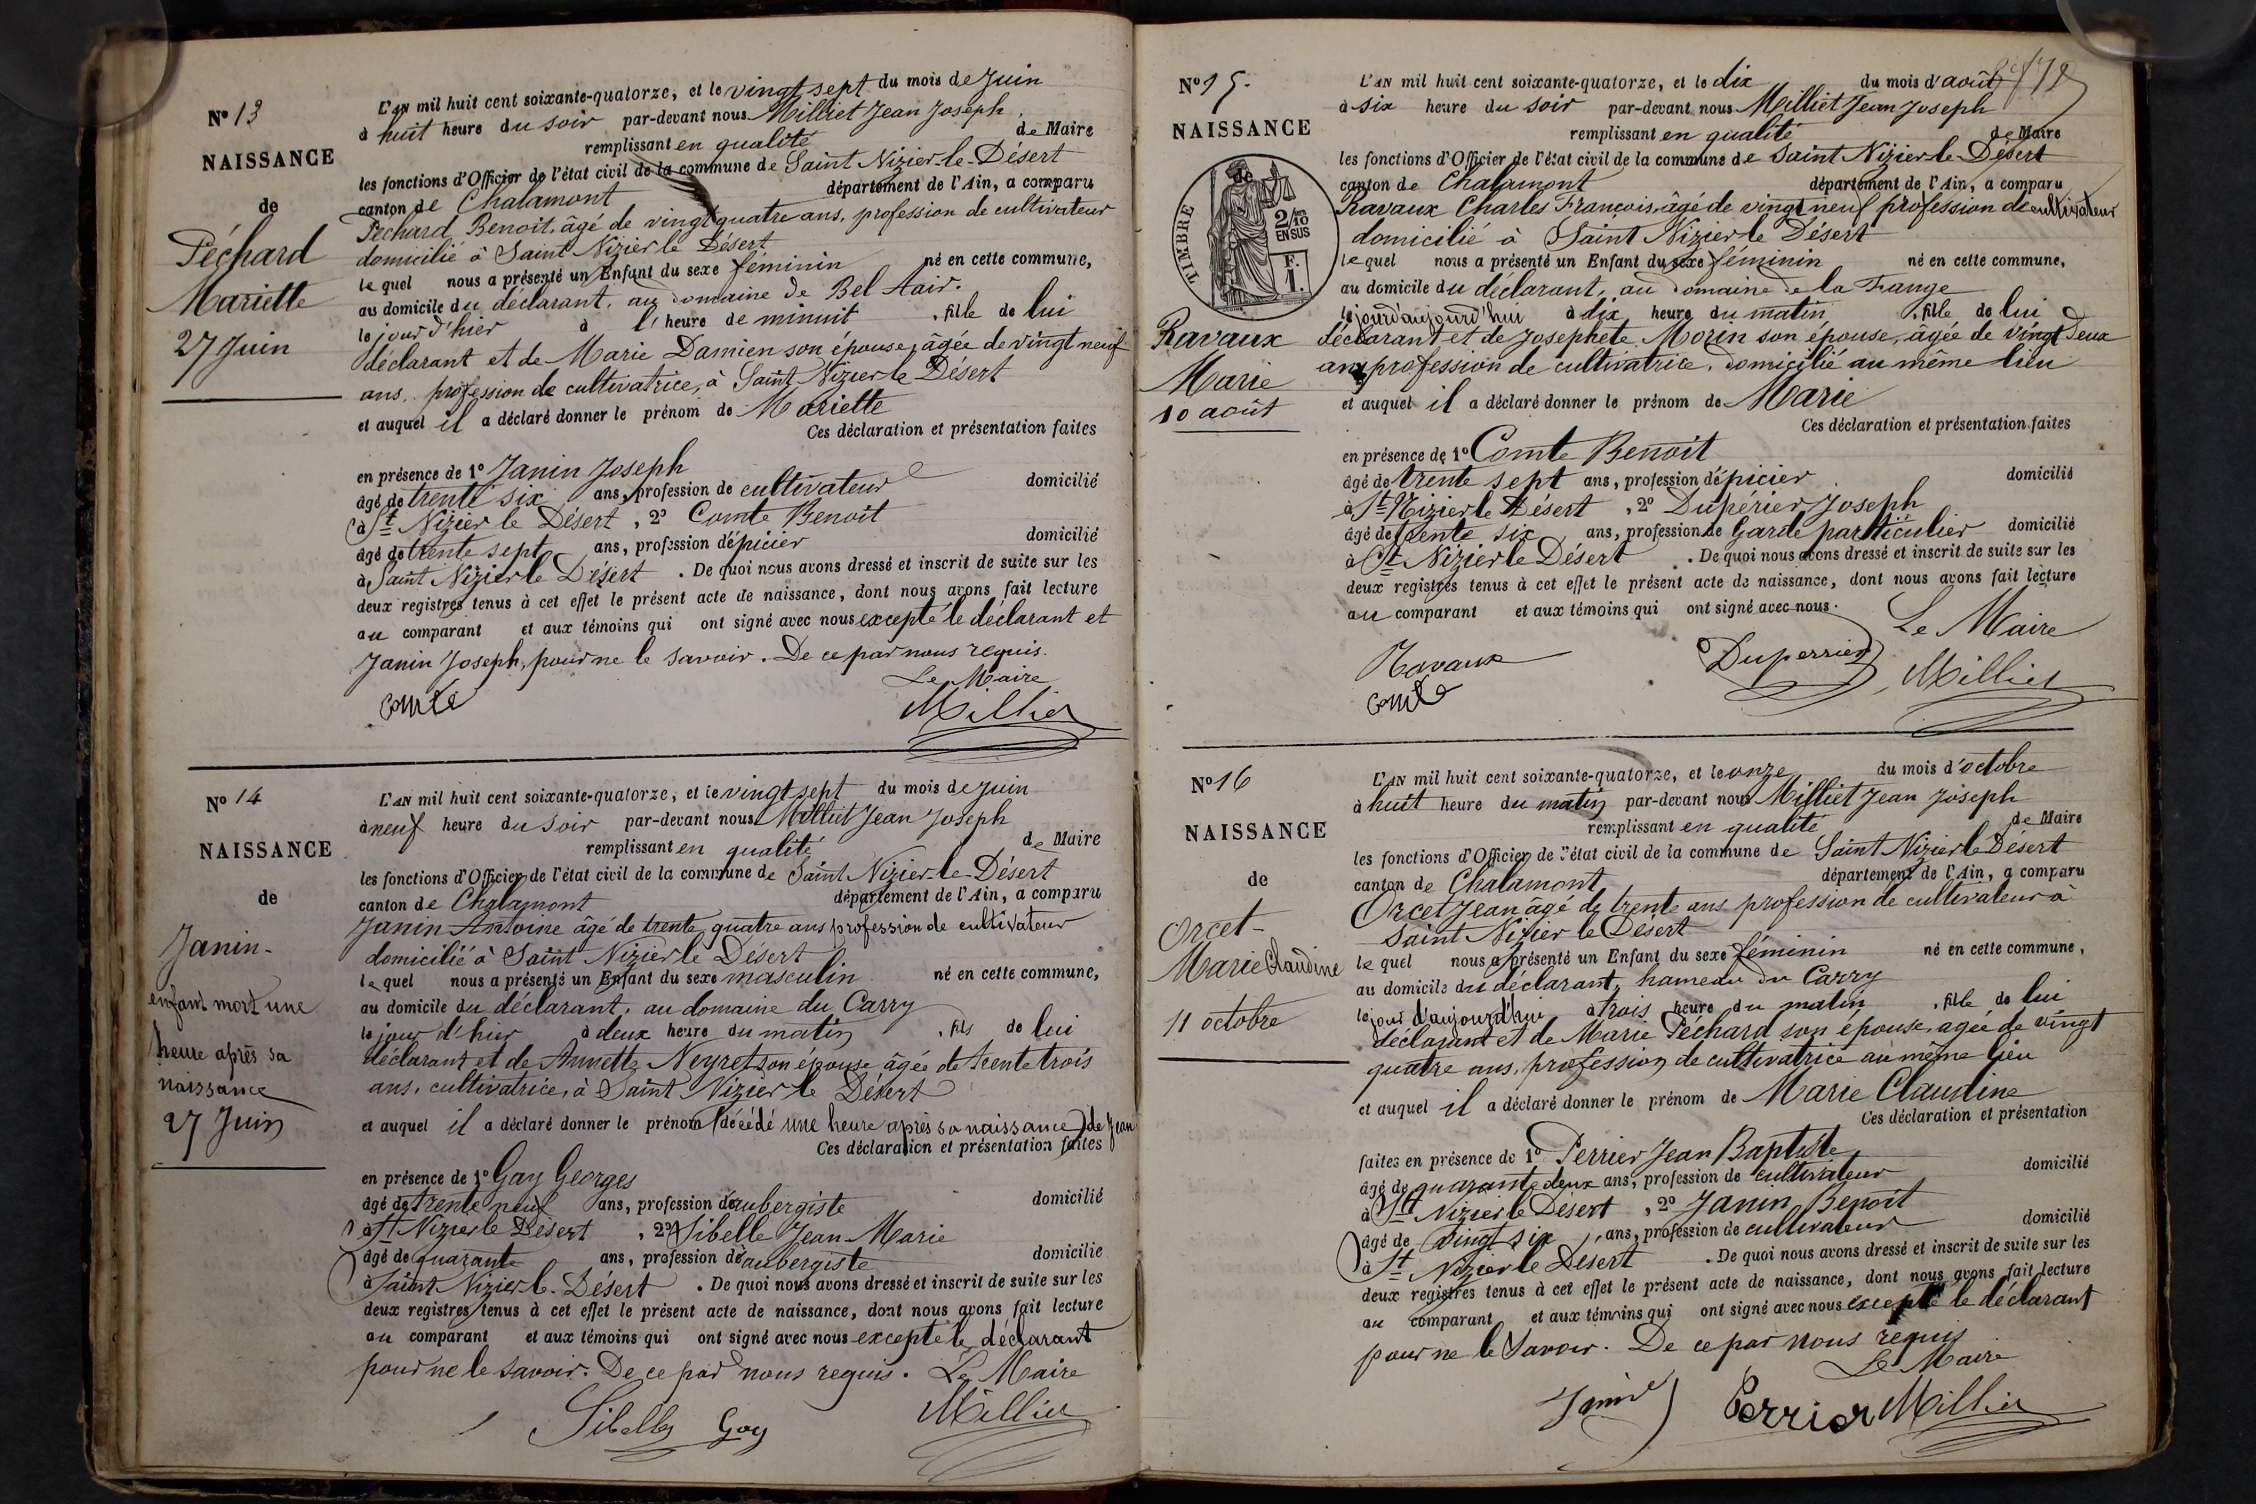 Nº 13
NAISSANCE
de
Péchard
Mariette
27 Juin
L'AN mil huit cent soixante-quatorze, et le vingt sept du mois de Juin
à huit heure du soir par-devant nous Milliet Jean Joseph
remplissant en qualité de Maire
les fonctions d'Officier de l'état civil de la commune de Saint Nizier-le-Désert
canton de Chalamont département de l'Ain, a comparu
Péchard Benoit, âgé de vingt quatre ans, profession de cultivateur
domicilié à Saint Nizier le Désert
lequel nous a présenté un Enfant du sexe féminin né en cette commune,
au domicile du déclarant, au domaine de Bel Air.
le jour d'hier à l'heure de minuit, fille de lui
déclarant et de Marie Damien son épouse, âgée de vingt neuf
ans, profession de cultivatrice, à Saint Nizier le Désert
et auquel il a déclaré donner le prénom de Mariette
Ces déclaration et présentation faites
en présence de 1º Janin Joseph
âgé de trente six ans, profession de cultivateur domicilié
à St Nizier le Désert, 2º Comte Benoit
âgé de trente sept ans, profession d'épicier domicilié
à Saint Nizier le Désert. De quoi nous avons dressé et inscrit de suite sur les
deux registres tenus à cet effet le présent acte de naissance, dont nous avons fait lecture
au comparant et aux témoins qui ont signé avec nous excepté le déclarant et
Janin Joseph, pour ne le savoir. De ce par nous requis.
Le Maire
Comte Milliet
Nº 14
NAISSANCE
de
Janin
enfant mort une
heure après sa
naissance
27 Juin
L'AN mil huit cent soixante-quatorze, et le vingt sept du mois de Juin
à neuf heure du soir par-devant nous Milliet Jean Joseph
remplissant en qualité de Maire
les fonctions d'Officier de l'état civil de la commune de Saint Nizier-le-Désert
canton de Chalamont département de l'Ain, a comparu
Janin Antoine âgé de trente quatre ans profession de cultivateur
domicilié à Saint Nizier le Désert
lequel nous a présenté un Enfant du sexe masculin né en cette commune,
au domicile du déclarant, au domaine du Carry
le jour d'hier à deux heure du matin, fils de lui
déclarant et de Annette Neyret son épouse âgée de trente trois
ans, cultivatrice, à Saint Nizier le Désert
et auquel il a déclaré donner le prénom (décédé une heure après sa naissance) de Jean
Ces déclaration et présentation faites
en présence de 1º Gay Georges
âgé de trente neuf ans, profession d'aubergiste domicilié
à St Nizier le Désert, 2º Sibelle Jean Marie
âgé de quarante ans, profession d'aubergiste domicilié
à Saint Nizier-le-Désert. De quoi nous avons dressé et inscrit de suite sur les
deux registres tenus à cet effet le présent acte de naissance, dont nous avons fait lecture
au comparant et aux témoins qui ont signé avec nous excepté le déclarant
pour ne le savoir. De ce par nous requis. Le Maire
Sibelle Gay Milliet
Nº 15.
NAISSANCE
de
TIMBRE
2/10 EN SUS
F.
1.
Ravaux
Marie
10 août
L'AN mil huit cent soixante-quatorze, et le dix du mois d'août
à six heure du soir par-devant nous Milliet Jean Joseph
remplissant en qualité de Maire
les fonctions d'Officier de l'état civil de la commune de Saint Nizier-le-Désert
canton de Chalamont département de l'Ain, a comparu
Ravaux Charles François, âgé de vingt neuf profession de cultivateur
domicilié à Saint Nizier le Désert
lequel nous a présenté un Enfant du sexe féminin né en cette commune,
au domicile du déclarant, au domaine de la Frange
le jour d'aujourd'hui à dix heure du matin, fille de lui
déclarant et de Josephete Morin son épouse, âgée de vingt deux
ans profession de cultivatrice, domicilié au même lieu
et auquel il a déclaré donner le prénom de Marie
Ces déclaration et présentation faites
en présence de 1º Comte Benoit
âgé de trente sept ans, profession d'épicier domicilié
à St Nizier le Désert, 2º Dupérier Joseph
âgé de trente six ans, profession de Garde particulier domicilié
à St Nizier le Désert. De quoi nous avons dressé et inscrit de suite sur les
deux registres tenus à cet effet le présent acte de naissance, dont nous avons fait lecture
au comparant et aux témoins qui ont signé avec nous.
Le Maire
Ravaux Duperrier Milliet
Comte
Nº 16
NAISSANCE
de
Orcet
Marie Claudine
11 octobre
L'AN mil huit cent soixante-quatorze, et le onze du mois d'octobre
à huit heure du matin par-devant nous Milliet Jean Joseph
remplissant en qualité de Maire
les fonctions d'Officier de l'état civil de la commune de Saint Nizier le Désert
canton de Chalamont département de l'Ain, a comparu
Orcet Jean âgé de trente ans profession de cultivateur à
Saint Nizier le Désert
lequel nous a présenté un Enfant du sexe féminin né en cette commune,
au domicile du déclarant, hameau du Carry
le jour d'aujourd'hui à trois heure du matin, fille de lui
déclarant et de Marie Péchard son épouse, agée de vingt
quatre ans, profession de cultivatrice au même lieu
et auquel il a déclaré donner le prénom de Marie Claudine
Ces déclaration et présentation
faites en présence de 1º Perrier Jean Baptiste
âgé de quarante deux ans, profession de cultivateur domicilié
à St Nizier le Désert, 2º Janin Benoit
âgé de vingt six ans, profession de cultivateur domicilié
à St Nizier le Désert. De quoi nous avons dressé et inscrit de suite sur les
deux registres tenus à cet effet le présent acte de naissance, dont nous avons fait lecture
au comparant et aux témoins qui ont signé avec nous excepté le déclarant
pour ne le savoir. De ce par nous requis
Le Maire
Janin Perrier Milliet